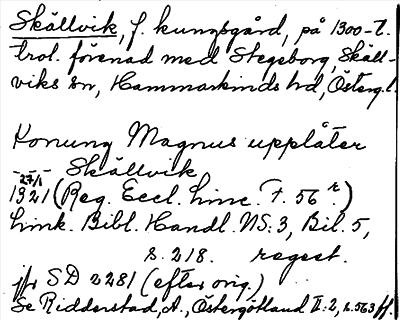 Skällvik, f. kungsgård, på 1300-t.
trol. förenad med Stegeborg, Skäll-
viks sn, Hammarkinds hd, Österg.l.
Konung Magnus upplåter
Skällvik
27/1
1321 (Reg. Eccl. Linc. f. 56 r.)
Link. Bibl. Handl. NS. 3, Bil. 5,
s. 218. regest.
jfr SD 2281 (efter orig.)
Se Ridderstad, A., Östergötland II:2, s. 563 ff.